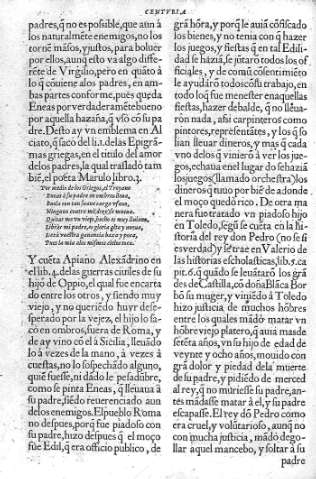 CENTVRIA
padres, q̃ no es posible, que aun à
los naturalmẽte enemigos, no los
tornẽ mãsos, y justos, para boluer
por ellos, aunq̃ esto va algo diffe-
rẽte de Virgilio, pero en quãto à
lo q̃ cõuiene a los padres, en am-
bas partes conforme, pues queda
Eneas por verdaderamẽte bueno
por aquella hazaña, q̃ vsò cõ su pa
dre. Desto ay vn emblema en Al
ciato, q̃ saco del li.1. de las Epigrã
mas griegas, en el titulo del amor
delos padres, la qual trasladò tam
biẽ, el poeta Marulo libro.3.
Por medio de los Griegos, el Troyano
Eneas à su padre en ombros
Dezia con tan
Ninguno contra mi
Quitar me vn viejo,
Librar mi padre, es gloria
Y cuẽta Apiano Alexãdrino en
el lib.4. delas guerras ciuiles de su
hijo de Oppio, el qual fue encarta
do entre los otros, y siendo muy
viejo, y no queriẽdo huyr deses-
perado por la vejez, el hijo lo sa-
cò en ombros, fuera de Roma, y
de ay vino cõ el à Sicilia, lleuãdo
lo à vezes de la mano, à vezes à
cuestas, no lo sospechãdo alguno,
quiẽ fuesse, ni dãdo le pesadũbre,
como se pinta Eneas, q̃ lleuaua à
su padre, siẽdo reuerenciado aun
delos enemigos. El pueblo Roma
no despues, porq̃ fue piadoso con
su padre, hizo despues q̃ el moço
fue Edil, q̃ era officio publico, de
grã hõra, y porq̃ le auiã cõfiscado
los bienes, y no tenia con q̃ hazer
los juegos, y fiestas q̃ en tal Edili-
dad se haziã, se jũtarõ todos los of
ficiales, y de comũ cõsentimiẽto
le ayudarõ todos cõ su trabajo, en
todo lo q̃ fue menester en aquellas
fiestas, hazer debalde, q̃ no lleua-
ron nada, assi carpinteros como
pintores, representãtes, y los q̃ so
lian lleuar dineros, y mas q̃ cada
vno delos q̃ vinierò à ver los jue-
gos, echaua en el lugar do se haziã
los juegos (llamado orchestra) los
dineros q̃ tuuo por biẽ de a donde
el moço quedò rico. De otra ma
nera fue tratado vn piadoso hijo
en Toledo, segũ se cuẽta en la hi-
storia del rey don Pedro (no se si
es verdad) y leerse en Valerio de
las historias escholasticas, lib.5. ca
pit.6. q̃ quãdo se leuãtarò los grã
des de Castilla, cõ doña Blãca Bor
bõ su muger, y viniẽdo à Toledo
hizo justicia de muchos hõbres
entre los quales mãdò matar vn
hõbre viejo platero, q̃ auia mas de
setẽta años, vn su hijo de edad de
veynte y ocho años, mouido con
grã dolor y piedad dela muerte
de su padre, y pidiẽdo de merced
al rey, q̃ no muriesse su padre, an-
tes mãdasse matar à el, y su padre
escapasse. El rey dõ Pedro como
era cruel, y volũtarioso, aunq̃ no
con mucha justicia, mãdò dego-
llar aquel mancebo, y soltar à su
padre